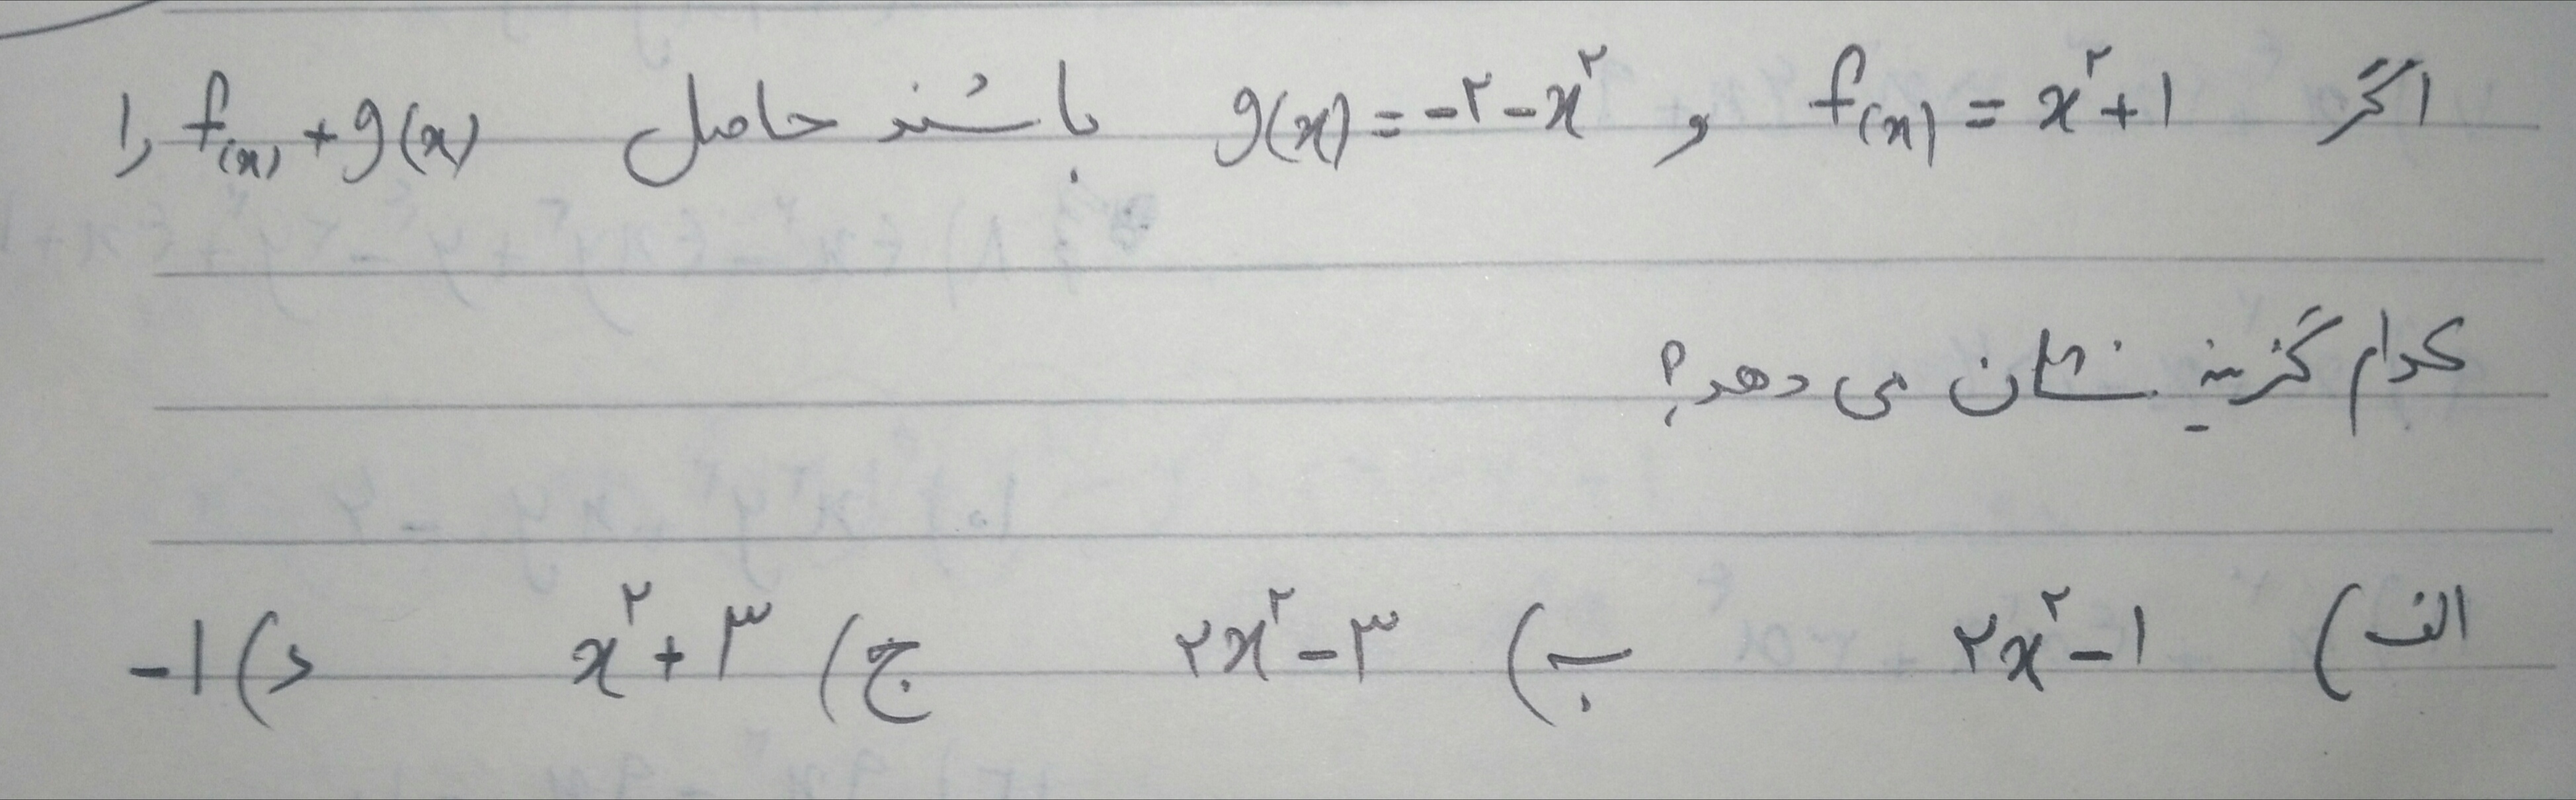 اگر f(x) = x²+۱ و g(x) = -۲-x² باشند حاصل f(x)+g(x) را
کدام گزینه نشان می دهد؟
الف) ۲x²-۱ ب) ۲x²-۳ ج) x²+۳ د) -۱